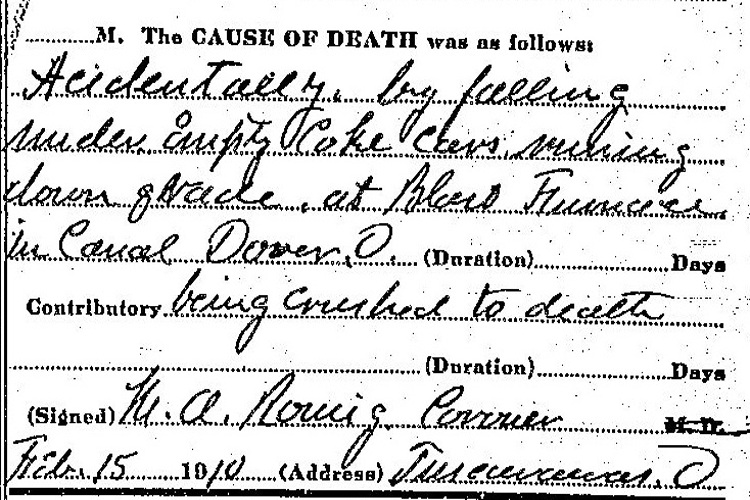 M. The CAUSE OF DEATH was as follows:
Acidentally, by falling
under Empty Coke Cars, runing
down grade, at Blast Furnace
in Canal Dover, O. (Duration) Days
Contributory being crushed to death
(Duration) Days
(Signed) M. A. Romig Coroner M. D.
Feb. 15 1910 (Address) Tuscarawas, O